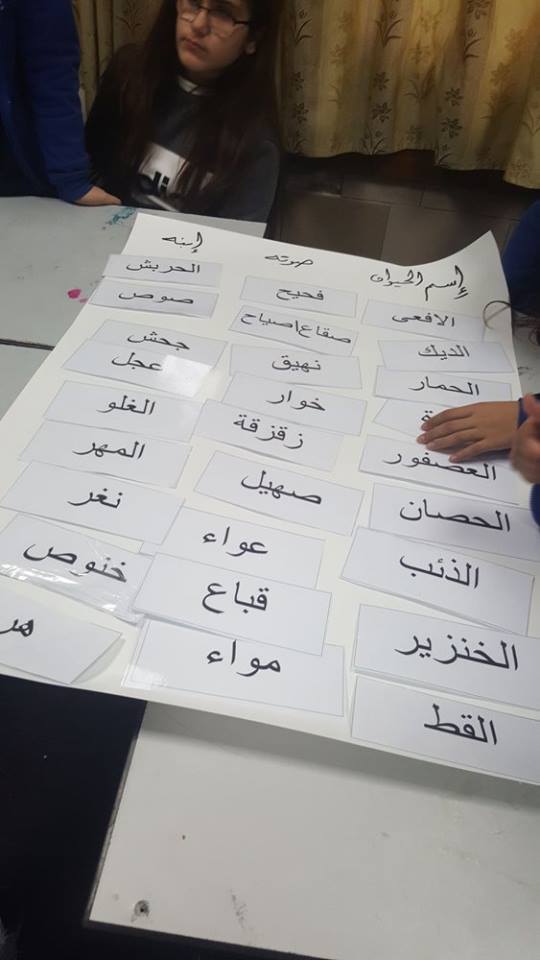 إسم الحيوان صوته إبنه
الافعى فحيح الحربش
الديك صقاع/صياح صوص
الحمار نهيق جحش
ة خوار عجل
العصفور زقزقة الغلو
الحصان صهيل المهر
الذئب عواء نغر
الخنزير قباع خنوص
القط مواء هر